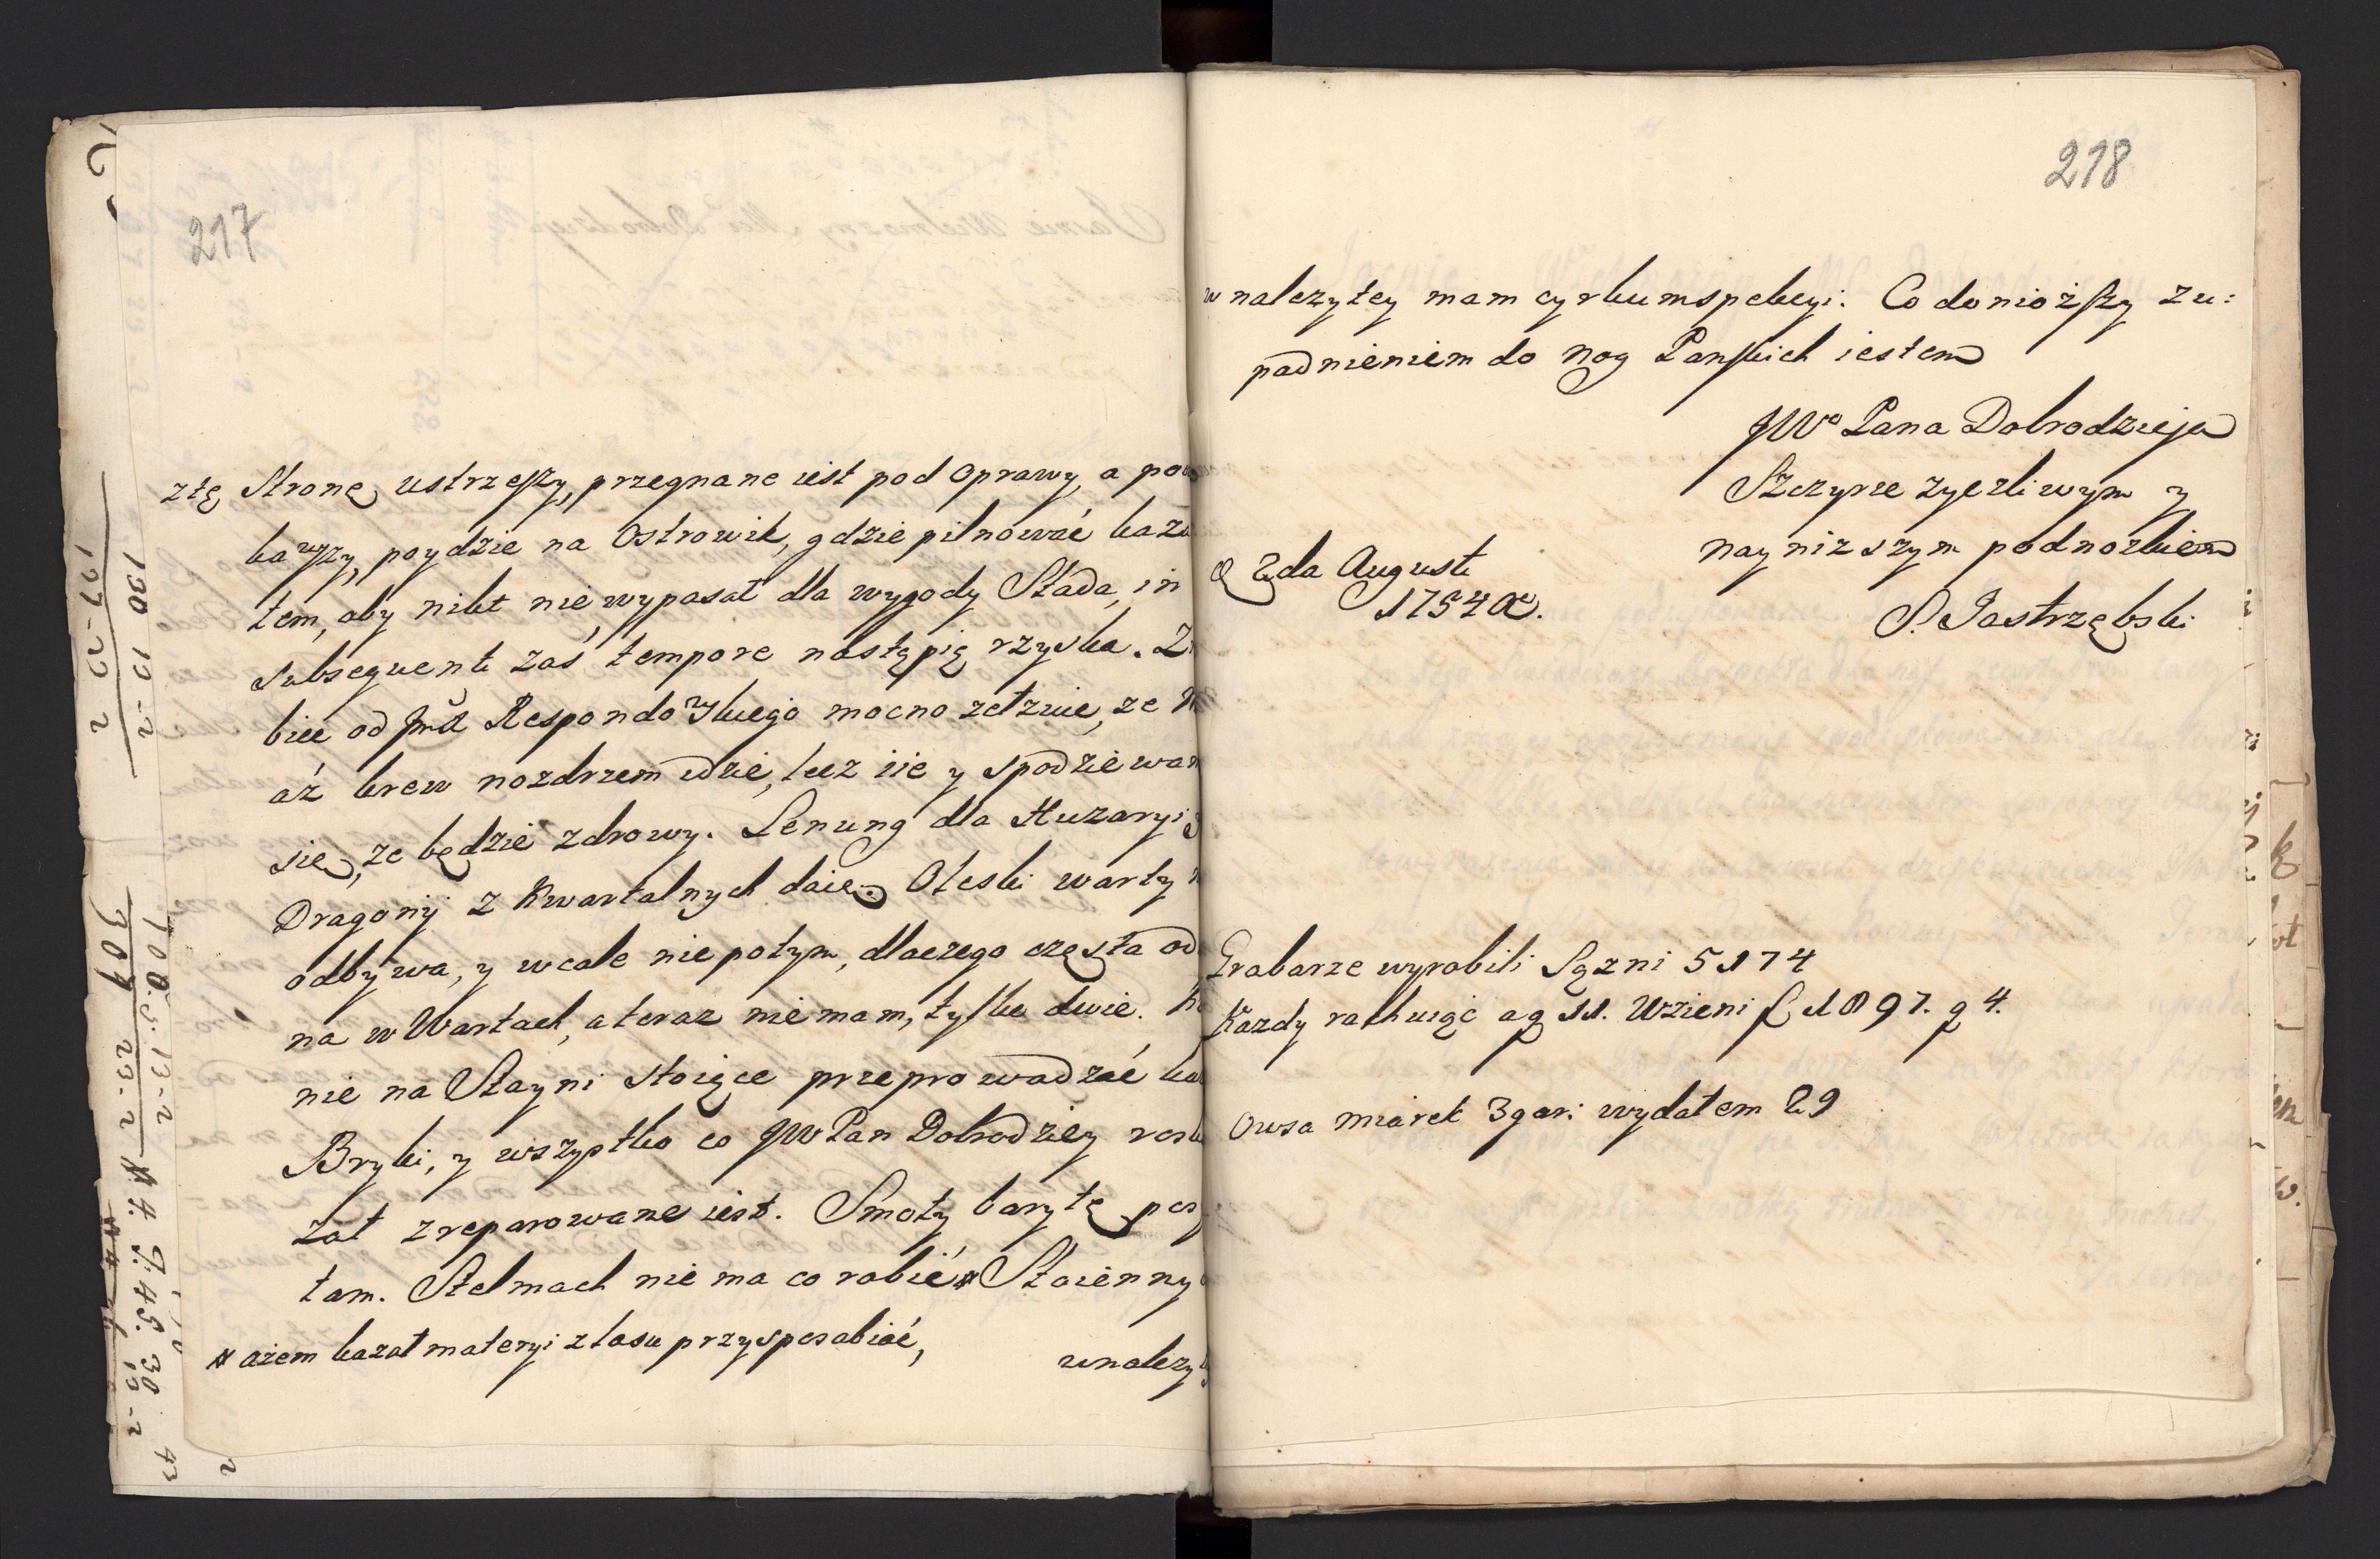 217
ztę Stronę ustrzejszy, przegnane iest pod Oprawy, a
bawszy, poydzie na Ostrowik, gdzie pilnować
tem, aby nikt nie wypasał dla wygody Stada, in
subsequenti zaś tempore nastąpią rzyska.
bice od Respondowskiego mocno zetznie, ze
áż krew nozdrzem idzie, lecz iie y spodziewam
się, ze będzie zdrowy. Lenung dla Huzaryi
Dragonij z Kwartalnych daię. Oleski warty
odbywa, y wcale nie potym, dlaczego częsta
na w Wartach, a teraz nie mam, tylke dwie.
nie na Stayni stoiące przeprowadzać
Bryki, y wszystko co JW Pan Dobrodziey
zał zreparowane iest. Smoły barytę
tam. Stelmach nie ma co robić # Staienny
# ażem kazał materyi z lasu przysposabiać,
w nalezy
218
w nalezytey mam cyrkumspekcyi. Co donioższy zu:
padnieniem do nog Panskich iestem
JWo Pana Dobrodzieja
Szczyrze zyczliwym y
nayniższym podnozkiem
S. Jastrzębski
2da Augusti
1754
Grabarze wyrobili Sązni 5174
Kazdy rachuiąc a g 11. Wzieni f 1897. g 4.
Owsa miárek 3 gar: wydałem 29